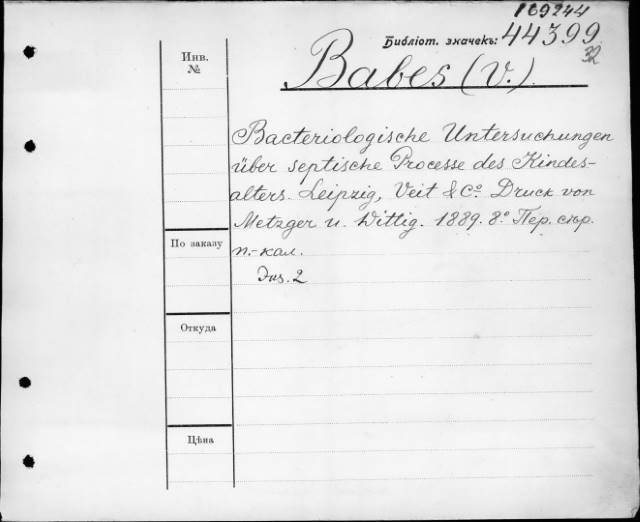 169244
Библіот. значекъ: 44399
32
Babes (V.)
Инв.
№
Bacteriologische Untersuchungen
über septische Processe des Kindes-
alters. Leipzig, Veit & Cº. Druck von
Metzger u. Wittig. 1889. 8º Пер. сѣр.
п.-кал.
По заказу
Экз. 2
Откуда
Цѣна